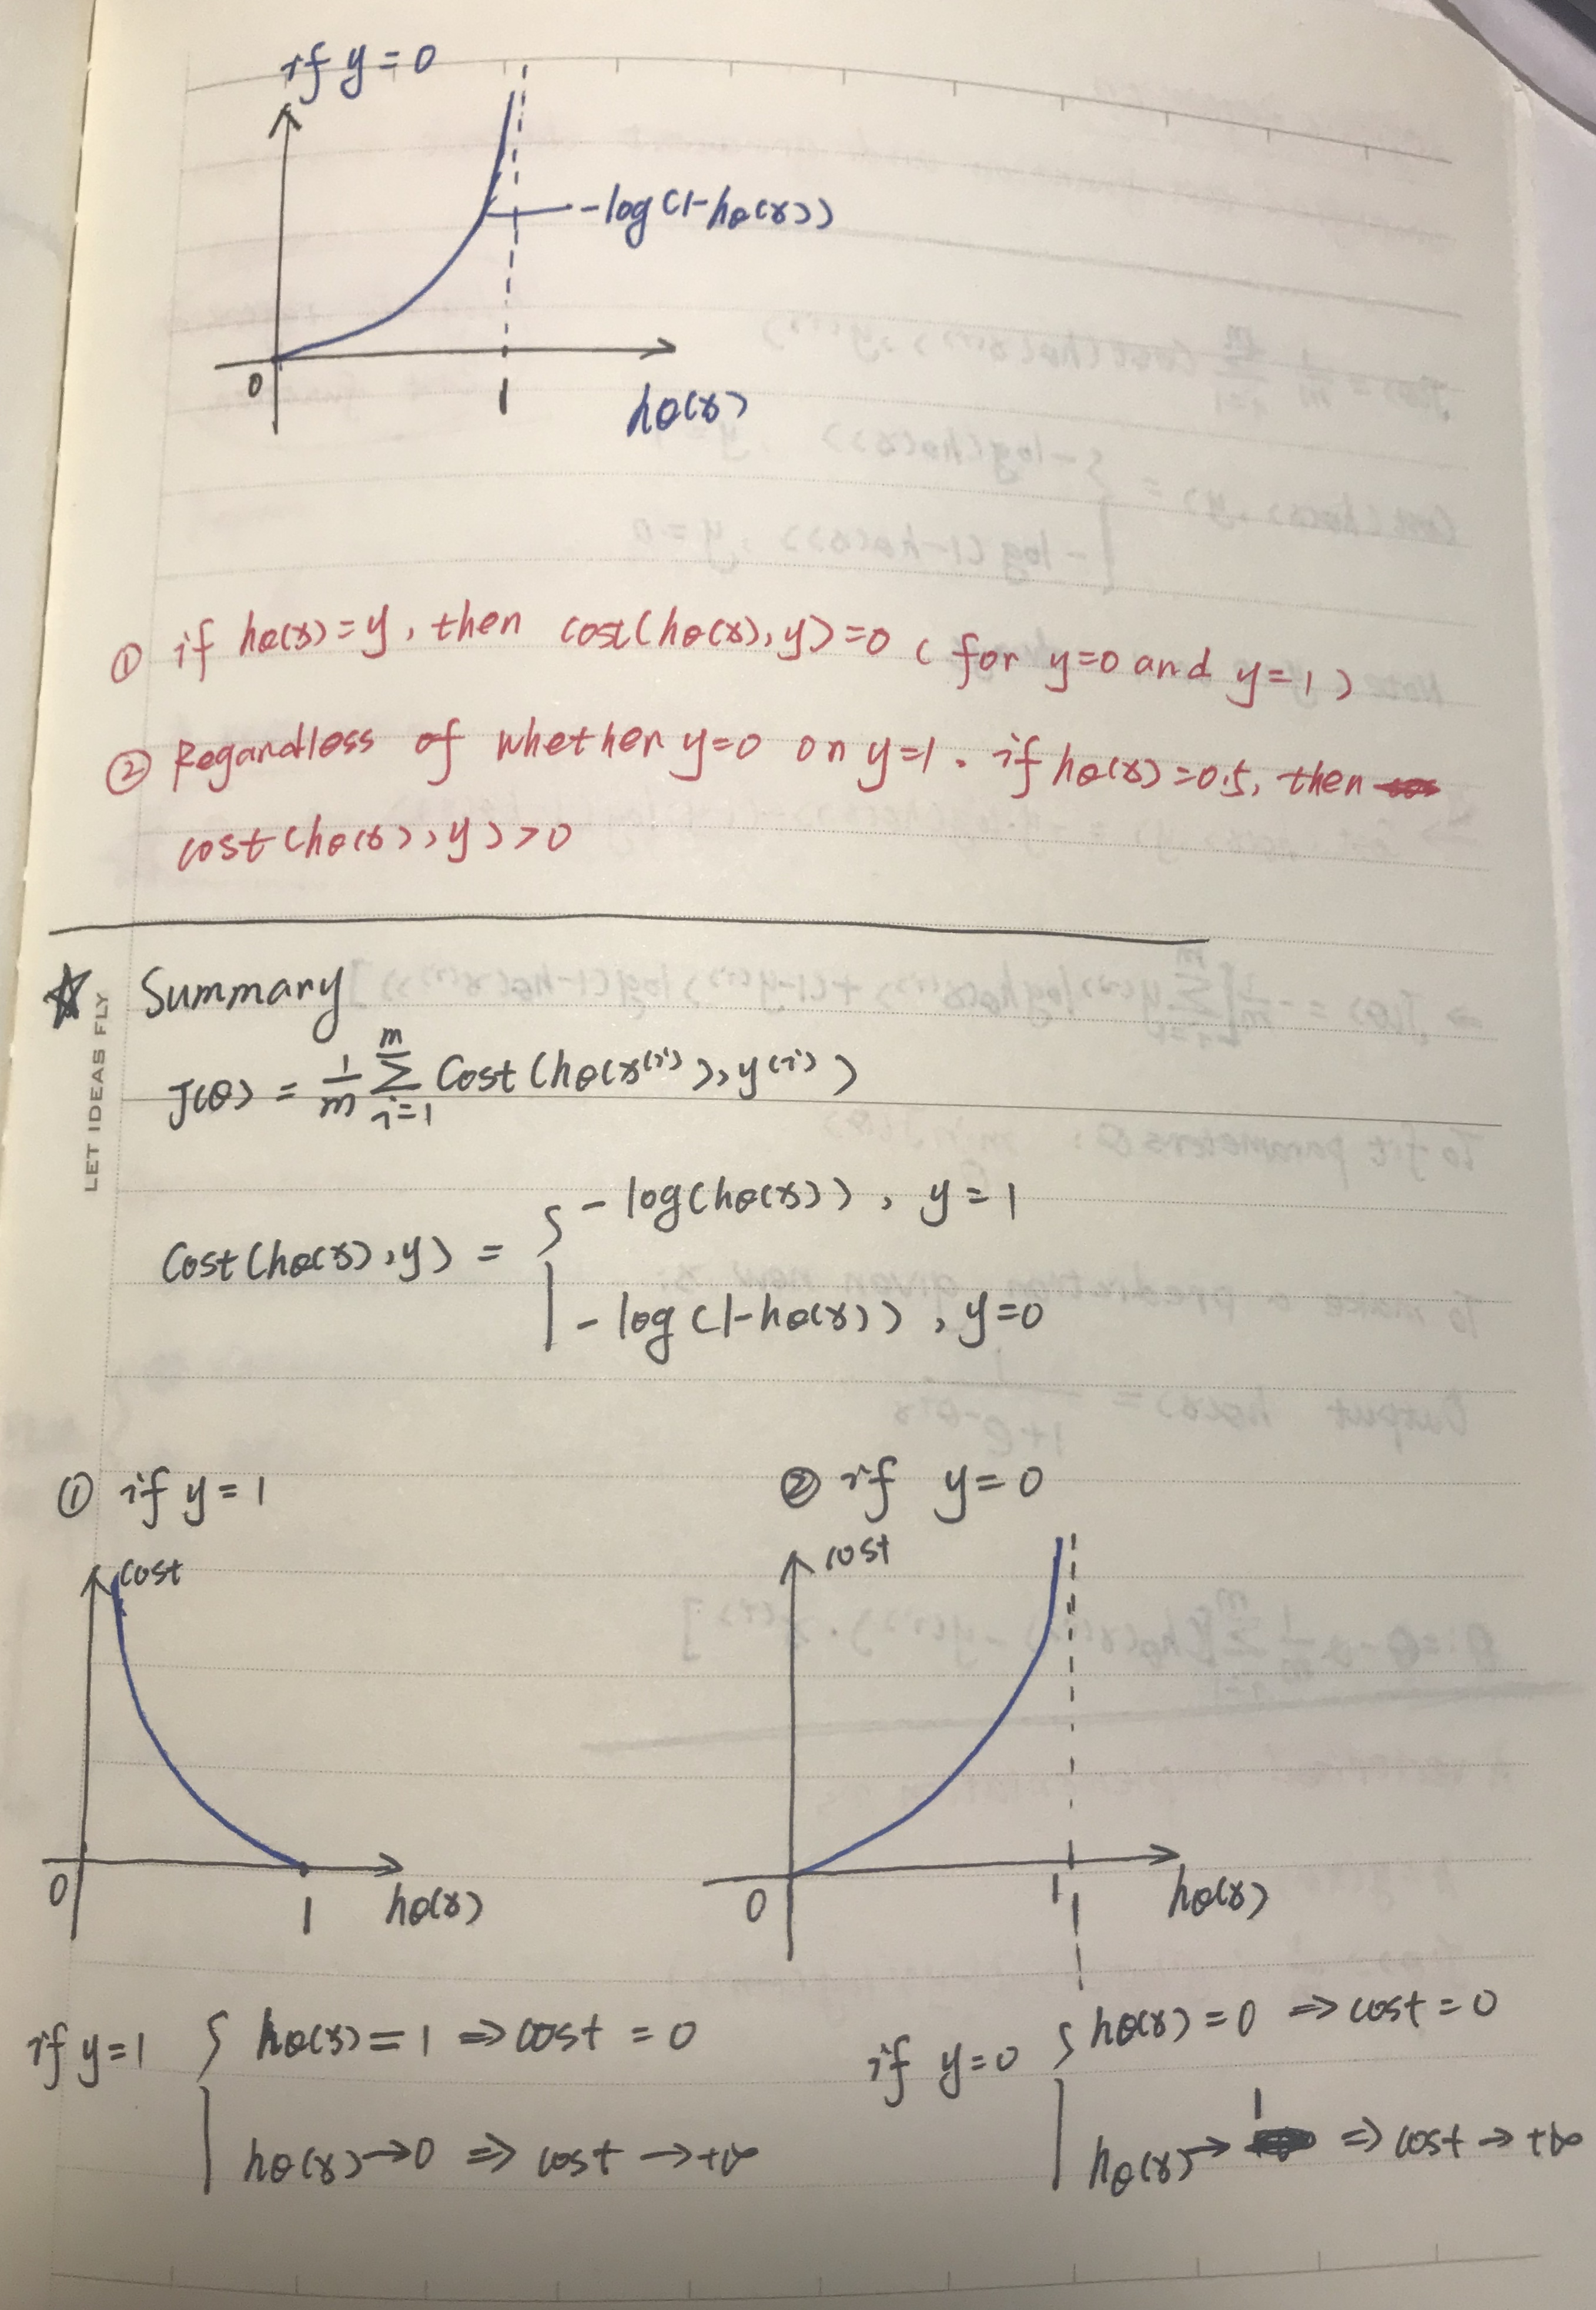 if y=0
-log(1-hθ(x))
0
1
hθ(x)
① if hθ(x)=y, then cost(hθ(x),y)=0 (for y=0 and y=1)
② Regardless of whether y=0 on y=1. if hθ(x)=0.5, then
cost(hθ(x),y)>0
☆ Summary
LET IDEAS FLY
J(θ) = 1/m Σ_{i=1}^{m} Cost(hθ(x^(i)),y^(i))
Cost(hθ(x),y) = { -log(hθ(x)), y=1
-log(1-hθ(x)), y=0
① if y=1
② if y=0
cost
0
1
hθ(x)
cost
0
1
hθ(x)
if y=1 { hθ(x)=1 ⇒ cost = 0
hθ(x)→0 ⇒ cost →+∞
if y=0 { hθ(x)=0 ⇒ cost=0
hθ(x)→1 ⇒ cost→+∞